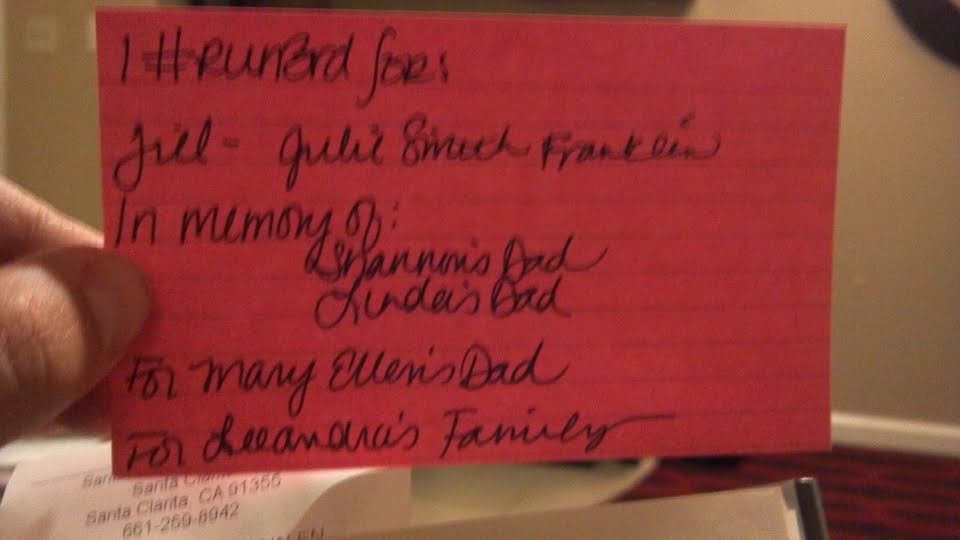 I #RUN3rd for:
Jill - Julie Smith Franklin
In memory of:
Shannon's Dad
Linda's Dad
For Mary Ellen's Dad
For Leeandra's Family
Santa Clarita, CA 91355
Santa Clarita, CA 91355
661-259-8942